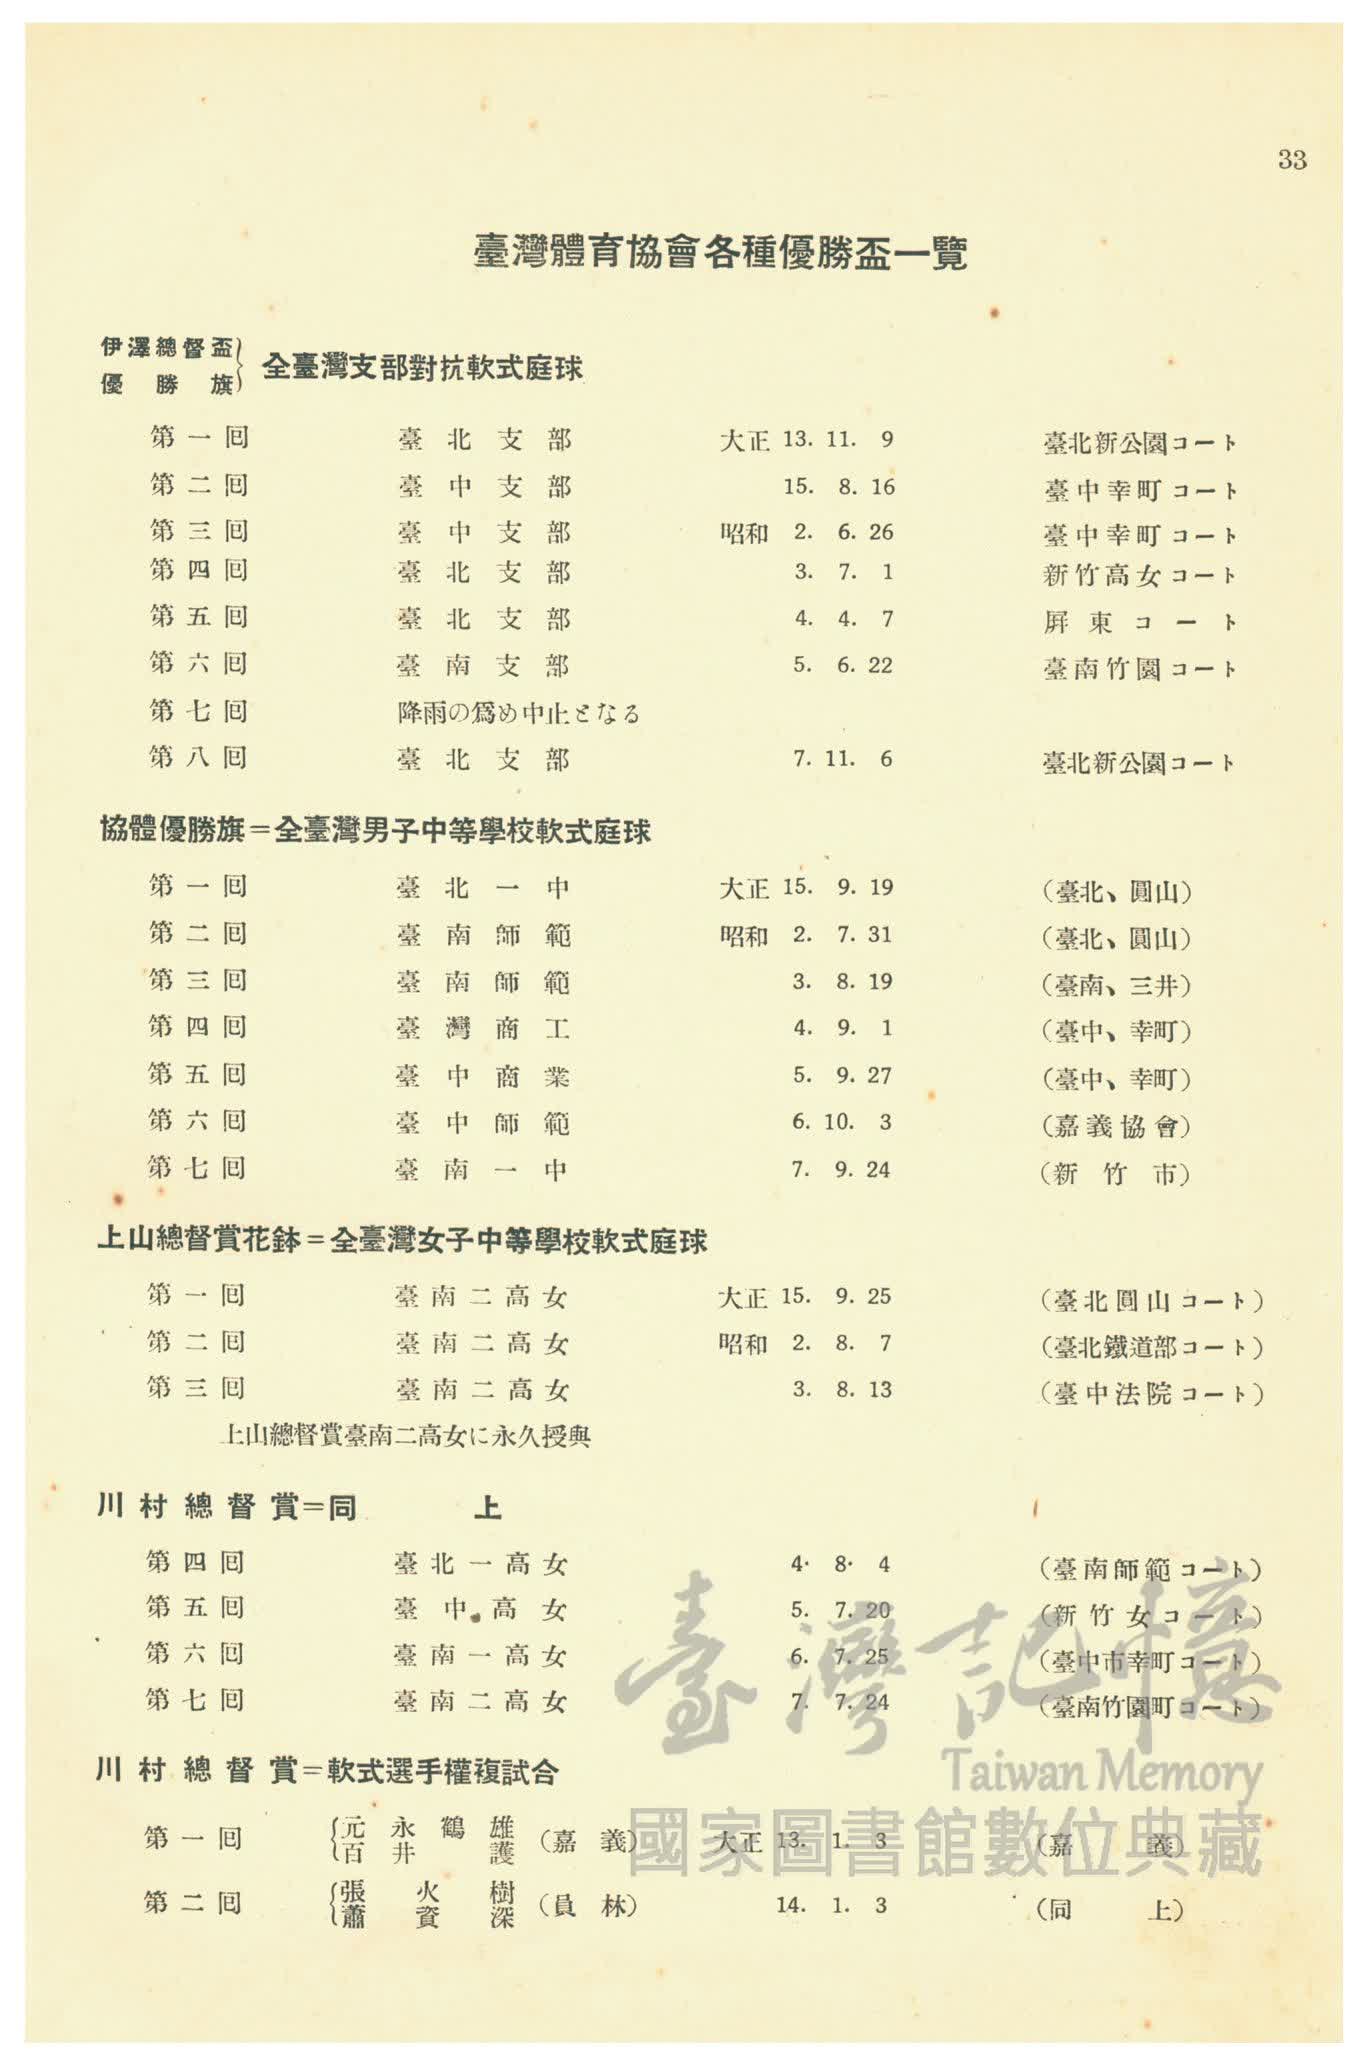 33
臺灣體育協會各種優勝盃一覽
伊澤總督盃
優勝旗
全臺灣支部對抗軟式庭球
第一囘 臺北支部 大正 13. 11. 9 臺北新公園コート
第二囘 臺中支部 15. 8. 16 臺中幸町コート
第三囘 臺中支部 昭和 2. 6. 26 臺中幸町コート
第四囘 臺北支部 3. 7. 1 新竹高女コート
第五囘 臺北支部 4. 4. 7 屛東コート
第六囘 臺南支部 5. 6. 22 臺南竹園コート
第七囘 降雨の爲め中止となる
第八囘 臺北支部 7. 11. 6 臺北新公園コート
協體優勝旗=全臺灣男子中等學校軟式庭球
第一囘 臺北一中 大正 15. 9. 19 (臺北、圓山)
第二囘 臺南師範 昭和 2. 7. 31 (臺北、圓山)
第三囘 臺南師範 3. 8. 19 (臺南、三井)
第四囘 臺灣商工 4. 9. 1 (臺中、幸町)
第五囘 臺中商業 5. 9. 27 (臺中、幸町)
第六囘 臺中師範 6. 10. 3 (嘉義協會)
第七囘 臺南一中 7. 9. 24 (新竹市)
上山總督賞花鉢=全臺灣女子中等學校軟式庭球
第一囘 臺南二高女 大正 15. 9. 25 (臺北圓山コート)
第二囘 臺南二高女 昭和 2. 8. 7 (臺北鐵道部コート)
第三囘 臺南二高女 3. 8. 13 (臺中法院コート)
上山總督賞臺南二高女に永久授與
川村總督賞=同上
第四囘 臺北一高女 4. 8. 4 (臺南師範コート)
第五囘 臺中高女 5. 7. 20 (新竹女コート)
第六囘 臺南一高女 6. 7. 25 (臺中市幸町コート)
第七囘 臺南二高女 7. 7. 24 (臺南竹園町コート)
川村總督賞=軟式選手權複試合
第一囘 {元永鶴雄 百井護 (嘉義) 大正 13. 1. 3 (嘉義)
第二囘 {張火樹 蕭資深 (員林) 14. 1. 3 (同上)
臺灣記憶
Taiwan Memory
國家圖書館數位典藏